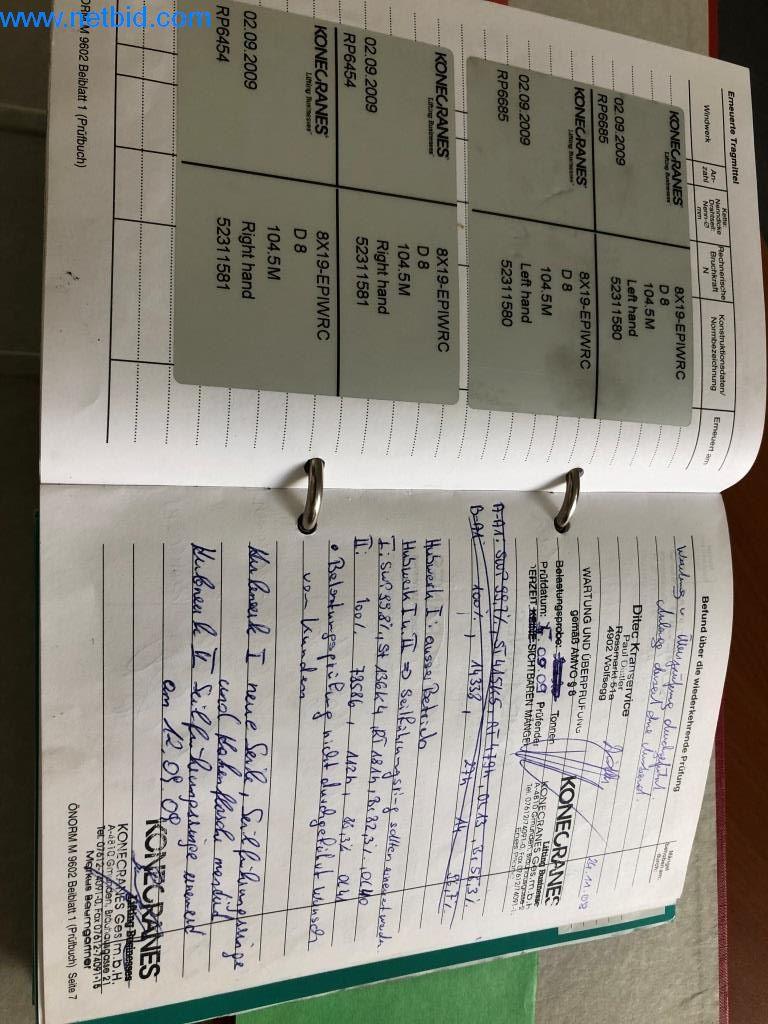 www.netbid.com
Erneuerte Tragmittel
Windwerk
An-
zahl
Kette:
Nenndicke
Drahtseil:
Nenn-Ø
mm
Rechnerische
Bruchkraft
N
Konstruktionsdaten/
Normbezeichnung
Erneuert am
KONECRANES
Lifting Businesses
02.09.2009
RP6685
8X19-EPIWRC
D 8
104.5M
Left hand
52311580
KONECRANES
Lifting Businesses
02.09.2009
RP6685
8X19-EPIWRC
D 8
104.5M
Left hand
52311580
KONECRANES
Lifting Businesses
02.09.2009
RP6454
8X19-EPIWRC
D 8
104.5M
Right hand
52311581
KONECRANES
Lifting Businesses
02.09.2009
RP6454
8X19-EPIWRC
D 8
104.5M
Right hand
52311581
ÖNORM M 9602 Beiblatt 1 (Prüfbuch)
Befund über die wiederkehrende Prüfung
Mängel
behoben am:
durch:
Wartung u. Überprüfung durchgeführt.
Ditec Kranservice
Paul Dittler
Rossmarkt 61a
4902 Wolfsegg
26.11.08
WARTUNG UND ÜBERPRÜFUNG
gemäß AMVO § 8
Belastungsprobe: Tonnen
Prüfdatum: 09 09 Prüfender
DERZEIT KEINE SICHTBAREN MÄNGEL
KONECRANES
Lifting Businesses
KONECRANES Ges.m.b.H.
A-4810 Gmunden,
Tel. 07612/74091-0, Fax 07612/
A-A1: SWP 99,7%, ST
B-A1: 100%, 14338, 27h
Hubwerk I: ausser Betrieb
Hubwerk I u. II => Seilführungsring sollten erneuert werden
I: SWP 99,8%, St 13664, RT 181h, Br 82,3%
II: 100% 78586, 112h, 86,3%
• Belastungsprüfung nicht durchgeführt Wunsch
von Kunden
Hubwerk I neue Seile, Seilführungsringe
und Hakenflasche montiert
Hubwerk II Seilführungsringe erneuert
am 12.09.09
KONECRANES
Lifting Businesses
KONECRANES Ges.m.b.H.
A-4810 Gmunden, 21
Tel. 07612-74091-0, Fax 07612-74091-15
Markus Baumgartner
ÖNORM M 9602 Beiblatt 1 (Prüfbuch) Seite 7